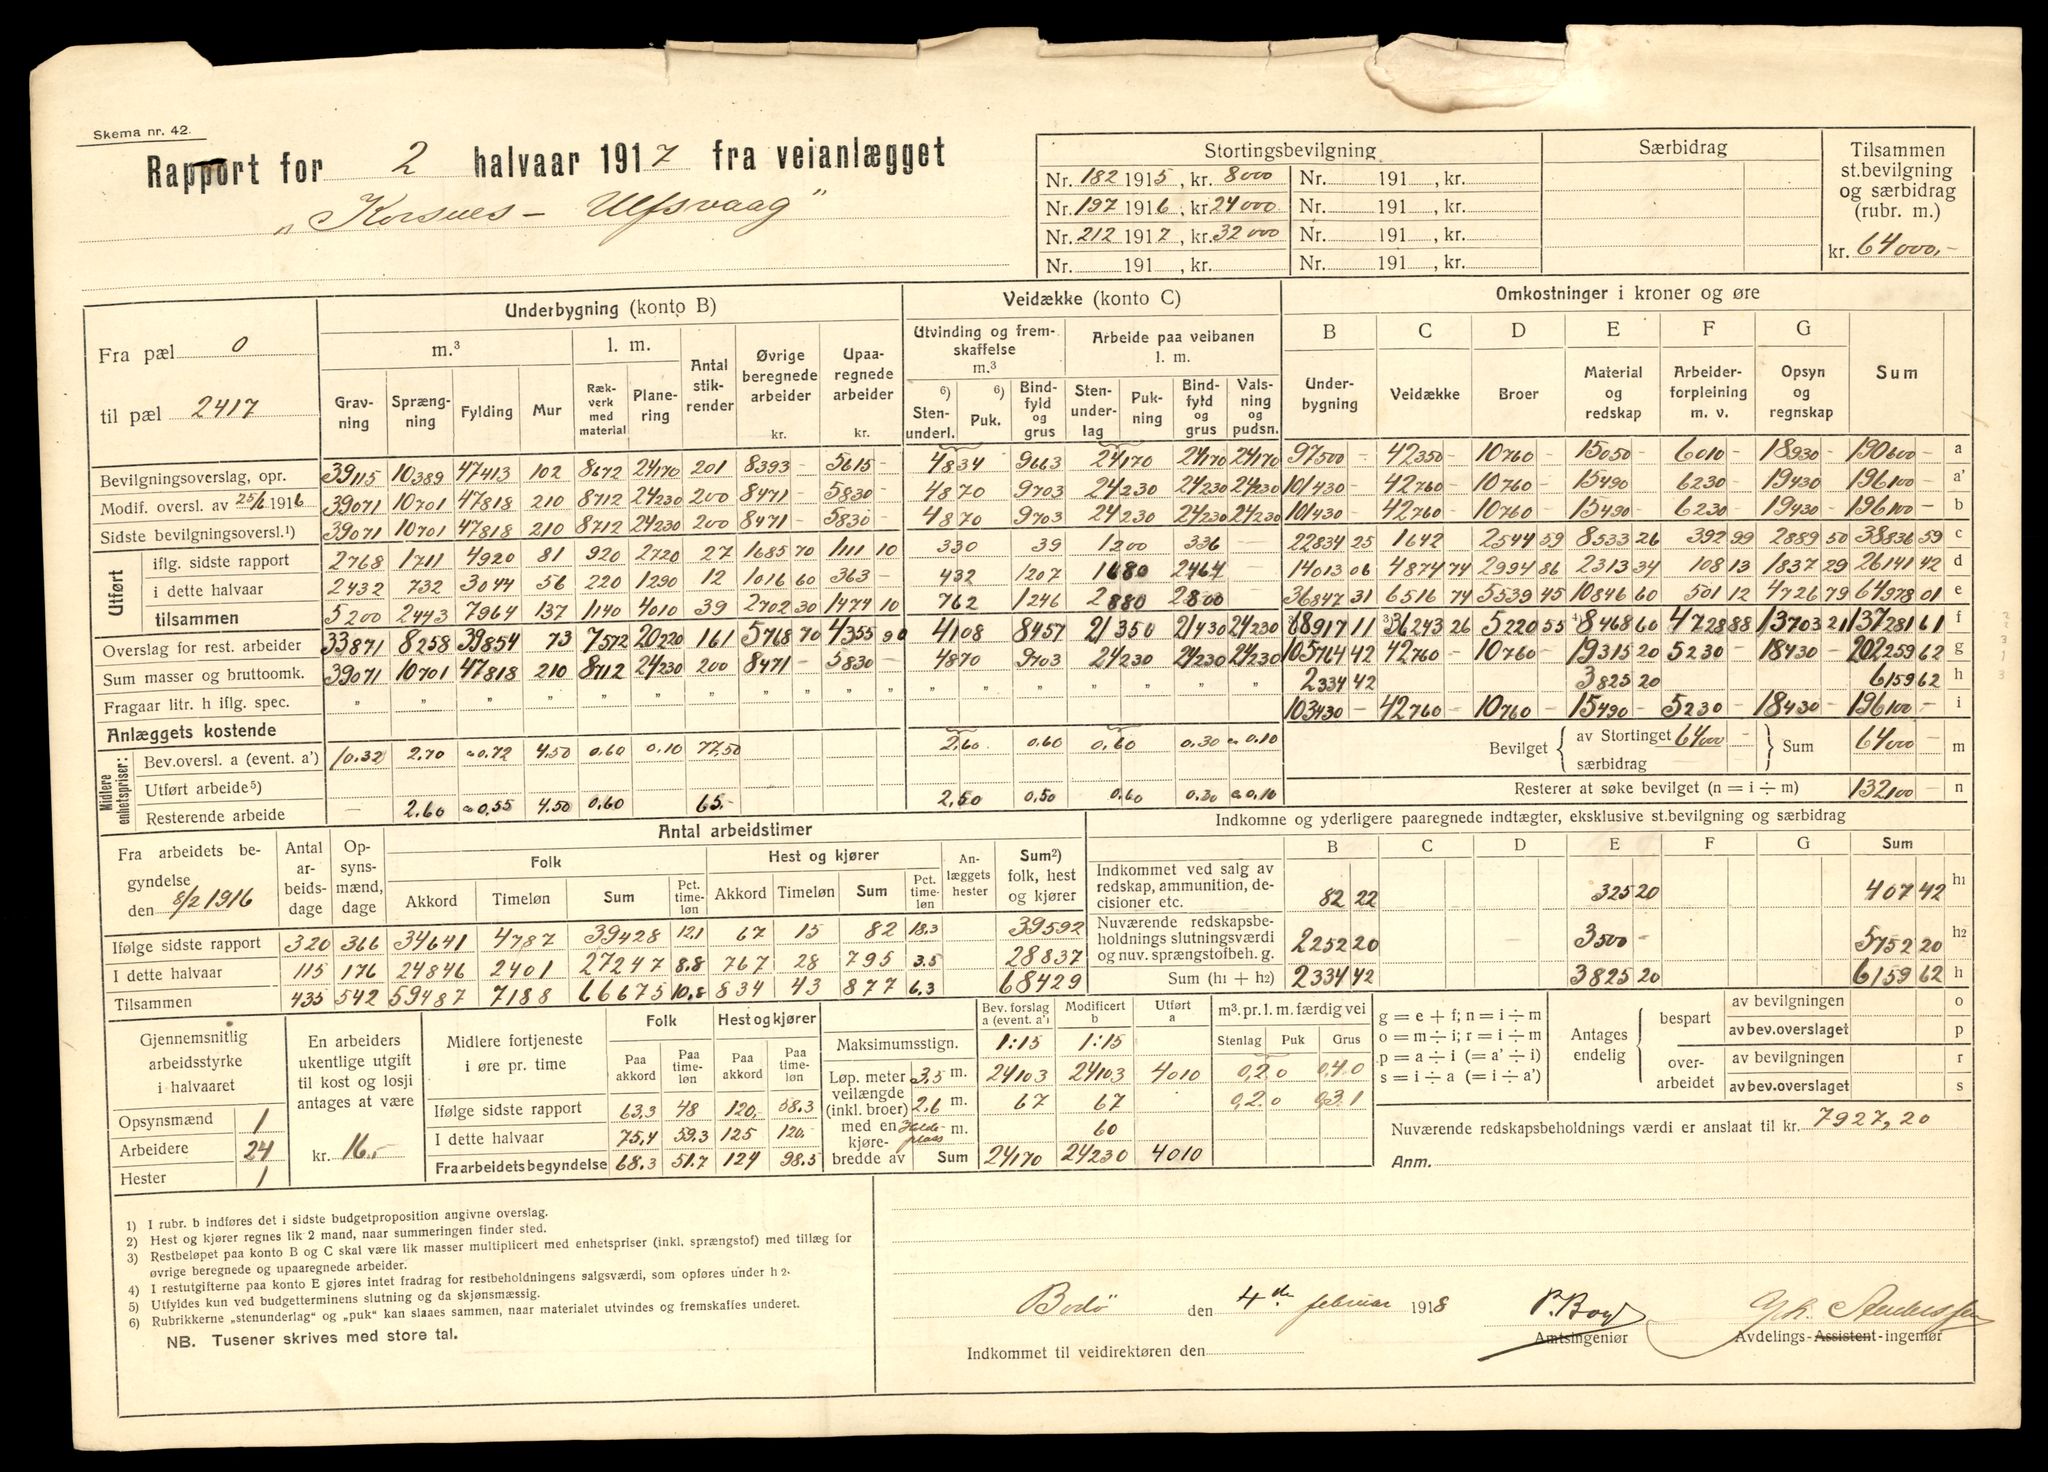 Skema nr. 42.
Rapport for 2 halvaar 1917 fra veianlægget
„Korsnes – Ulfsvaag”
Stortingsbevilgning
Særbidrag
Tilsammen st.bevilgning og særbidrag (rubr. m.)
Nr. 182 1915, kr. 8000 Nr. 191 , kr.
Nr. 197 1916, kr. 24000 Nr. 191 , kr.
Nr. 212 1917, kr. 32000 Nr. 191 , kr.
Nr. 191 , kr. Nr. 191 , kr.
kr. 64000,-
Fra pæl 0
til pæl 2417
Underbygning (konto B)
Veidække (konto C)
Omkostninger i kroner og øre
m.³ l. m. Antal stikrender Øvrige beregnede arbeider kr. Upaaregnede arbeider kr.
Gravning Sprængning Fylding Mur Rækverk med material Planering
Utvinding og fremskaffelse m.³ Arbeide paa veibanen l. m.
6) Stenunderl. 6) Puk. Bindfyld og grus Stenunderlag Pukning Bindfyld og grus Valsning og pudsn.
B C D E F G
Underbygning Veidække Broer Material og redskap Arbeiderforpleining m. v. Opsyn og regnskap Sum
Bevilgningsoverslag, opr. 39115 10389 47413 102 8672 24170 201 8393 - 5615 - 4834 9663 24170 24170 24170 97500 - 42350 - 10760 - 15050 - 6010 - 18930 - 190600 - a
Modif. oversl. av 25/6 1916 39071 10701 47818 210 8712 24230 200 8471 - 5830 - 4870 9703 24230 24230 24230 101430 - 42760 - 10760 - 15490 - 6230 - 19430 - 196100 - a'
Sidste bevilgningsoversl.1) 39071 10701 47818 210 8712 24230 200 8471 - 5830 - 4870 9703 24230 24230 24230 101430 - 42760 - 10760 - 15490 - 6230 - 19430 - 196100 - b
Utført
iflg. sidste rapport 2768 1711 4920 81 920 2720 27 1685 70 1111 10 330 39 1200 336 — 22834 25 1642 2544 59 8533 26 392 99 2889 50 38836 59 c
i dette halvaar 2432 732 3044 56 220 1290 12 1016 60 363 - 432 1207 1680 2464 — 14013 06 4874 74 2994 86 2313 34 108 13 1837 29 26141 42 d
tilsammen 5200 2443 7964 137 1140 4010 39 2702 30 1474 10 762 1246 2880 2800 — 36847 31 6516 74 5539 45 10846 60 501 12 4726 79 64978 01 e
Overslag for rest. arbeider 33871 8258 39854 73 7572 20220 161 5768 70 4355 90 4108 8457 21350 21430 24230 68917 11 36243 26 5220 55 8468 60 4728 88 13703 21 137281 61 f
Sum masser og bruttoomk. 39071 10701 47818 210 8712 24230 200 8471 - 5830 - 4870 9703 24230 24230 24230 105764 42 42760 - 10760 - 19315 20 5230 - 18430 - 202259 62 g
Fragaar litr. h iflg. spec. " " " " " " " " " " " " " " 2334 42 3825 20 6159 62 h
Anlæggets kostende 103430 - 42760 - 10760 - 15490 - 5230 - 18430 - 196100 - i
Midlere enhetspriser:
Bev.oversl. a (event. a') 0.32 2.70 0.72 4.50 0.60 0.10 77.50 2.60 0.60 0.60 0.30 0.10
Utført arbeide5)
Resterende arbeide — 2.60 0.55 4.50 0.60 65.- 2.50 0.50 0.60 0.30 0.10
Bevilget av Stortinget 64000 - særbidrag Sum 64000 - m
Resterer at søke bevilget (n = i ÷ m) 132100 - n
Fra arbeidets begyndelse den 8/2 1916
Antal arbeidsdage Opsynsmænd, dage
Antal arbeidstimer
Folk Hest og kjører Anlæggets hester Sum2) folk, hest og kjører
Akkord Timeløn Sum Pct. timeløn Akkord Timeløn Sum Pct. timeløn
Ifølge sidste rapport 320 366 34641 4787 39428 12.1 67 15 82 18.3 39592
I dette halvaar 115 176 24846 2401 27247 8.8 767 28 795 3.5 28837
Tilsammen 435 542 59487 7188 66675 10.8 834 43 877 6.3 68429
Indkomne og yderligere paaregnede indtægter, eksklusive st.bevilgning og særbidrag
B C D E F G Sum
Indkommet ved salg av redskap, ammunition, decisioner etc. 82 22 325 20 407 42 h1
Nuværende redskapsbeholdnings slutningsværdi og nuv. sprængstofbeh. g. 2252 20 3500 - 5752 20 h2
Sum (h1 + h2) 2334 42 3825 20 6159 62 h
Gjennemsnitlig arbeidsstyrke i halvaaret
Opsynsmænd 1
Arbeidere 24
Hester 1
En arbeiders ukentlige utgift til kost og losji antages at være
kr. 16,-
Midlere fortjeneste i øre pr. time
Folk Hest og kjører
Paa akkord Paa timeløn Paa akkord Paa timeløn
Ifølge sidste rapport 63.3 48 120.- 58.3
I dette halvaar 75.4 59.3 125 120.-
Fra arbeidets begyndelse 68.3 51.7 124 98.5
Bev. forslag a (event. a') Modificert b Utført a
m³. pr. l. m. færdig vei
Stenlag Puk Grus
Maksimumsstign. 1:15 1:15
Løp. meter veilængde (inkl. broer) med en kjørebredde av
3.5 m. 24103 24103 4010 0,20 0,40
2.6 m. 67 67 0,20 0,31
m. 60
Sum 24170 24230 4010
g = e + f; n = i ÷ m
o = m ÷ i; r = i ÷ m
p = a ÷ i (= a' ÷ i)
s = i ÷ a (= i ÷ a')
Antages endelig
bespart av bevilgningen o
av bev.overslaget p
overarbeidet av bevilgningen r
av bev.overslaget s
Nuværende redskapsbeholdnings værdi er anslaat til kr. 7927,20
Anm.
1) I rubr. b indføres det i sidste budgetproposition angivne overslag.
2) Hest og kjører regnes lik 2 mand, naar summeringen finder sted.
3) Restbeløpet paa konto B og C skal være lik masser multiplicert med enhetspriser (inkl. sprængstof) med tillæg for
øvrige beregnede og upaaregnede arbeider.
4) I restutgifterne paa konto E gjøres intet fradrag for restbeholdningens salgsværdi, som opføres under h 2.
5) Utfyldes kun ved budgetterminens slutning og da skjønsmæssig.
6) Rubrikkerne „stenunderlag" og „puk" kan slaaes sammen, naar materialet utvindes og fremskaffes underet.
NB. Tusener skrives med store tal.
Bodø den 4de februar 1918
Amtsingeniør
Avdelings-Assistent-ingeniør
Indkommet til veidirektøren den